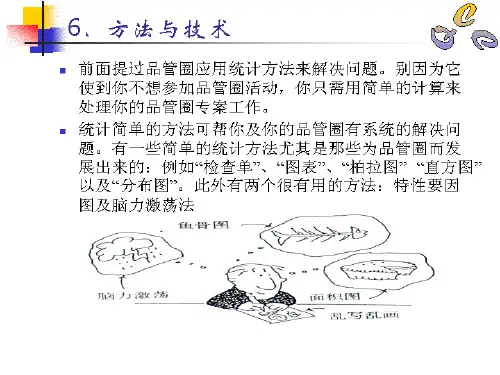 6. 方法与技术
前面提过品管圈应用统计方法来解决问题。别因为它
使到你不想参加品管圈活动，你只需用简单的计算来
处理你的品管圈专案工作。
统计简单的方法可帮你及你的品管圈有系统的解决问
题。有一些简单的统计方法尤其是那些为品管圈而发
展出来的：例如“检查单”、“图表”、“柏拉图” “直方图”
以及“分布图”。此外有两个很有用的方法：特性要因
图及脑力激荡法
鱼骨图
脑力激荡
面积图
乱写乱画